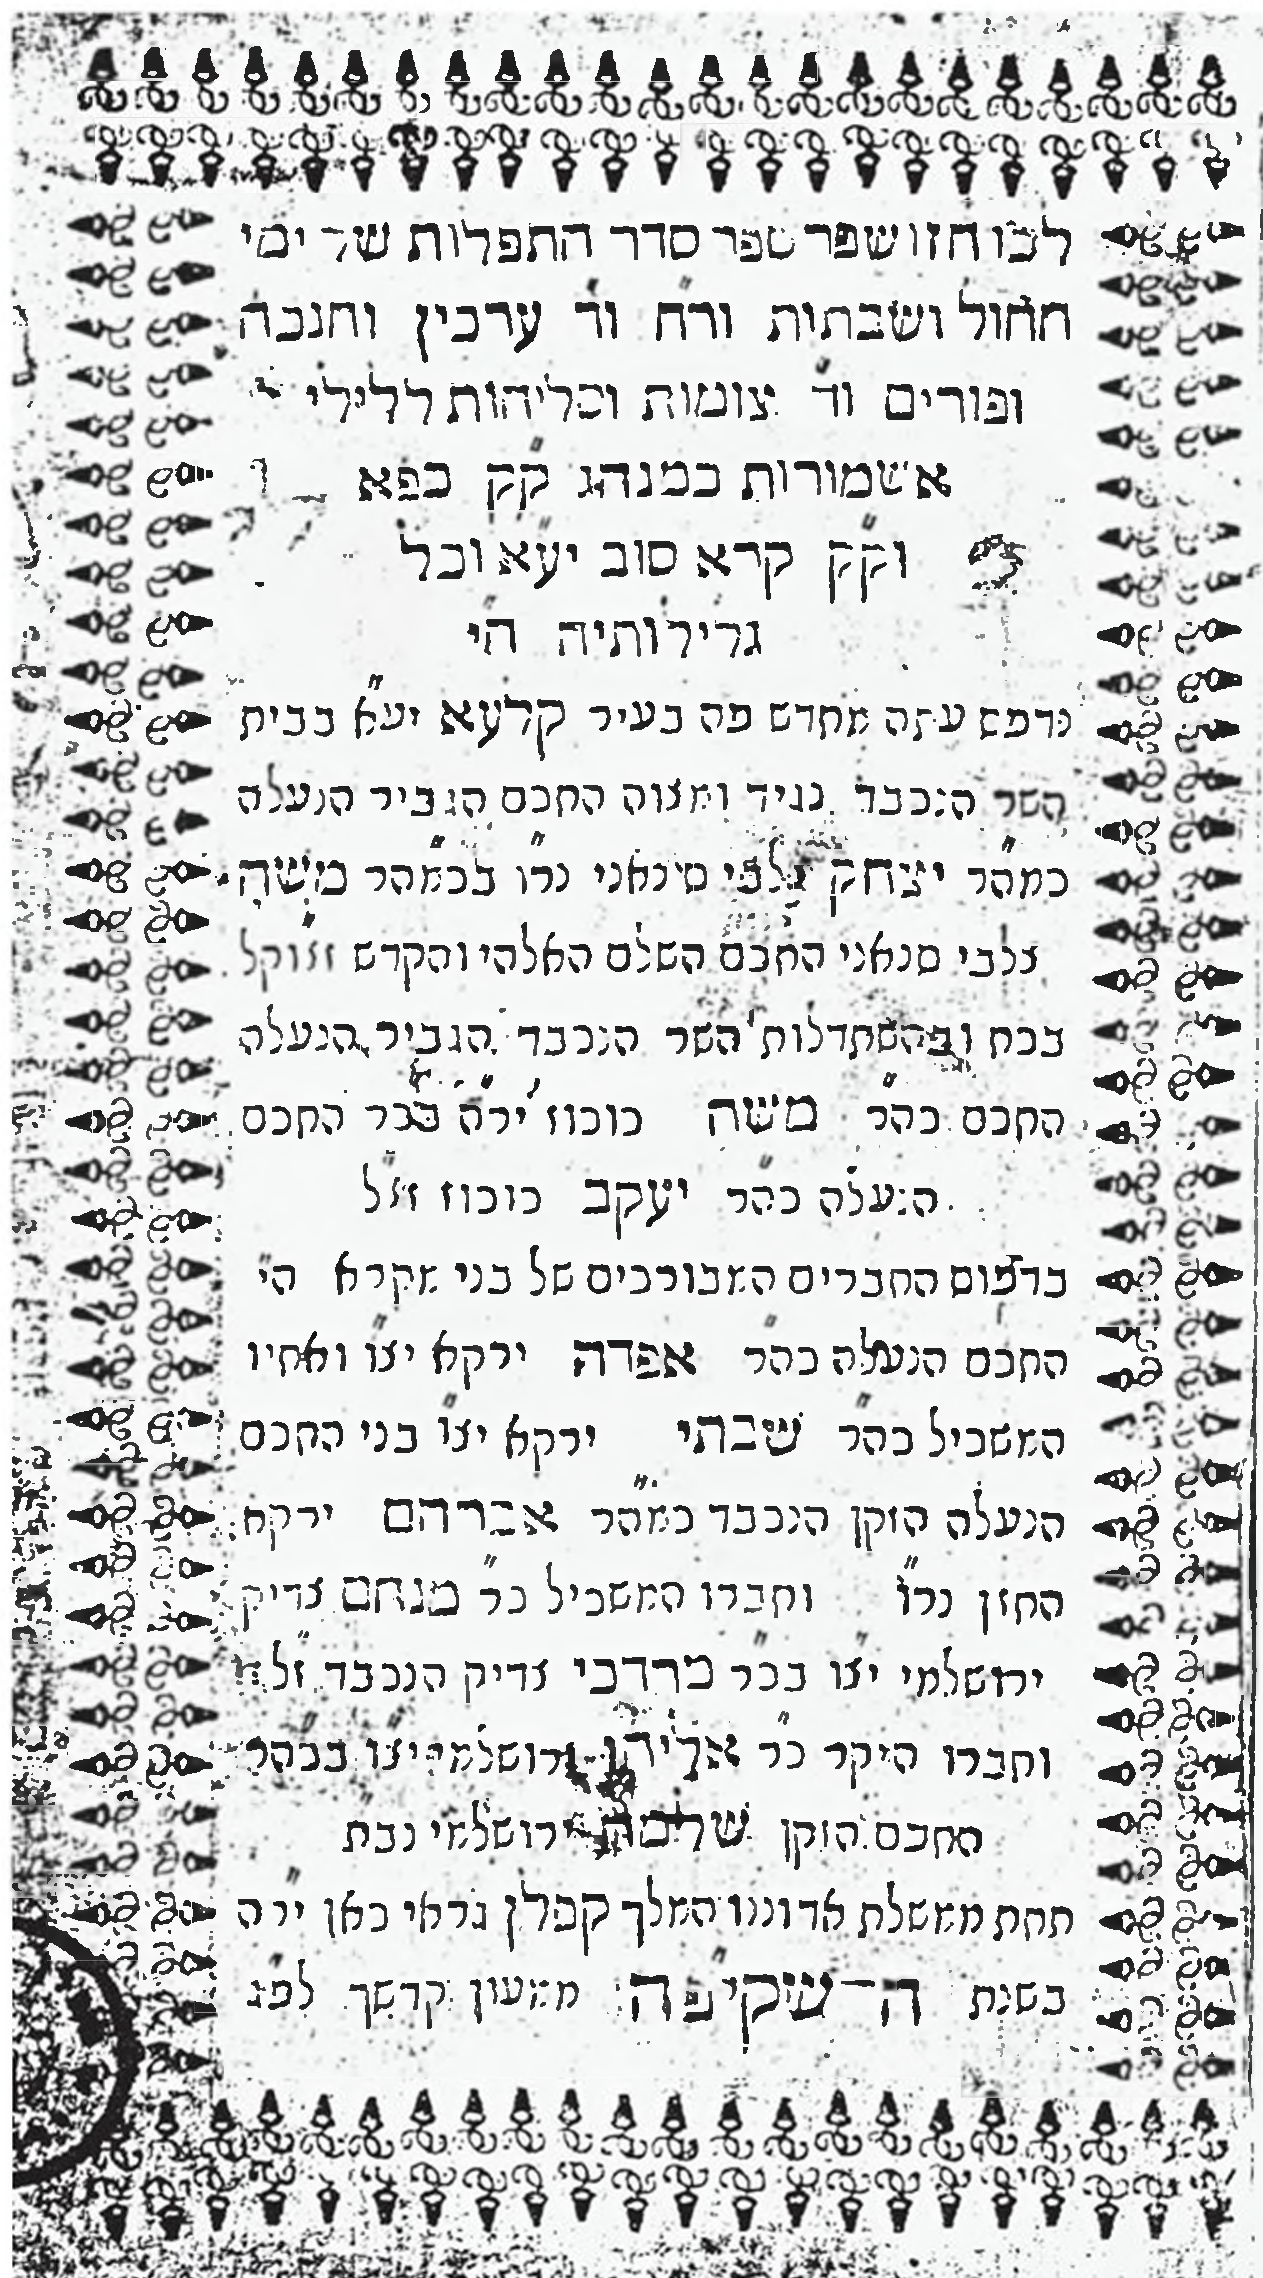 לכו חזו שפר ספר סדר התפלות של ימי
החול ושבתות ור״ח וד״ ערכין וחנכה
ופורים וד״ צומות וסליחות ללילי
אשמורות כמנהג ק״ק כפא
וק״ק קרא סוב יע״א וכל
גלילותיה ה״י
נדפס עתה מחדש פה בעיר קלעא יע״א בבית
השר הנכבד נגיד ומצוה החכם הגביר הנעלה
כמה״ר יצחק צלבי סינאני נר״ו בכמה״ר משה
צלבי סנאני החכם השלם האלהי והקדש זצוק״ל
בכח ובהשתדלות השר הנכבד הגביר הנעלה
החכם כה״ר משה כוכוז יר״ה בכר החכם
הנעלה כה״ר יעקב כוכוז ז״ל
בדפוס החברים המבורכים של בני מקרא ה״י
החכם הנעלה כה״ר אפדה ירקא יצ״ו ואחיו
המשכיל כה״ר שבתי ירקא יצ״ו בני החכם
הנעלה הזקן הנכבד כמה״ר אברהם ירקא
החזן נר״ו וחברו המשכיל כ״ר מנחם צדיק
ירושלמי יצ״ו בכ״ר מרדכי צדיק הנכבד ז״ל
וחברו היקר כ״ר אליהו ירושלמי יצ״ו בכה״ר
החכם הזקן שלמה ירושלמי נבת
תחת ממשלת אדוננו המלך קפלן גראי כאן יר״ה
בשנת השקיפה ממעון קדשך לפ״ג